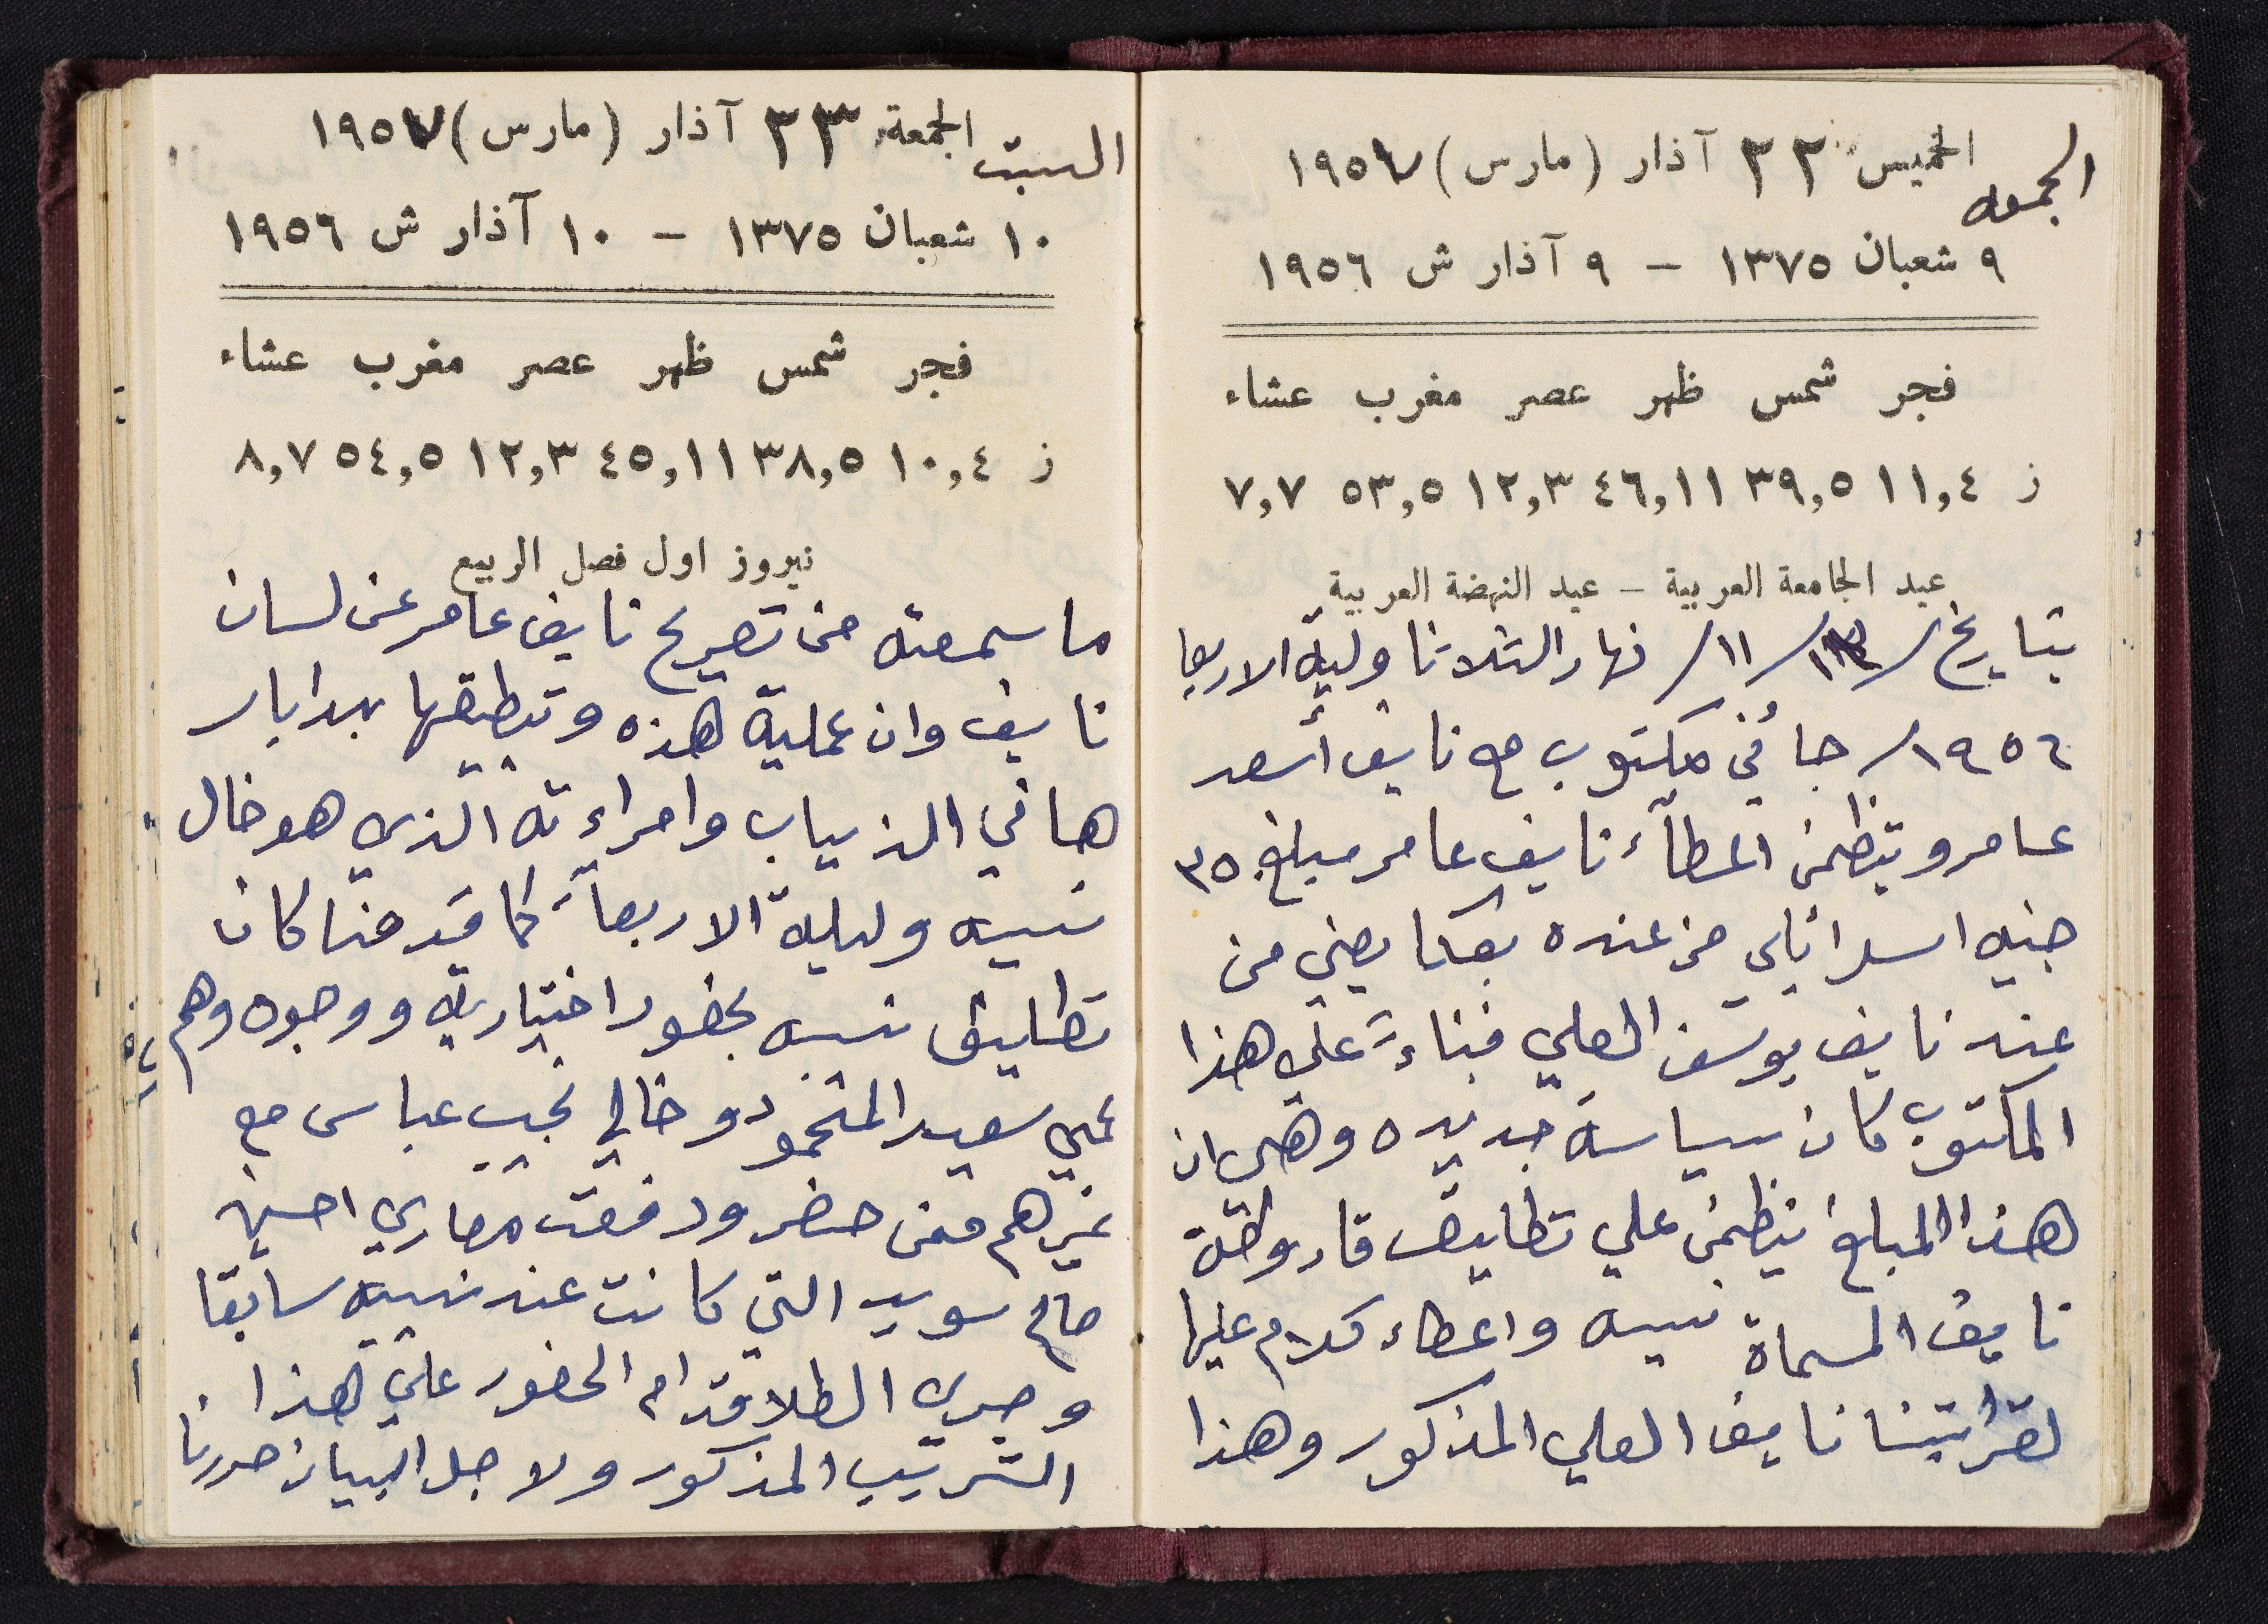 الجمعه الخميس ٢٢ آذار (مارس) ١٩٥٧
٩ شعبان ١٣٧٥ – ٩ آذار ش ١٩٥٦
فجر شمس ظهر عصر مغرب عشاء
ز ١١,٤ ٣٩,٥ ٤٦,١١ ١٢,٣ ٥٣,٥ ٧,٧
عيد الجامعة العربية – عيد النهضة العربية
بتاريخ / ١٣ / ١١ / نهار الثلاثا وليلة الاربعا
١٩٥٦/ جائني مكتوب مع نايف أسعد
عامر ويتظمن اعطآء نايف عامر مبلغ ٣٥٠
جنيه اسرائيلي من عنده بعكا يعني من
عند نايف يوسف العلي فبناءً علي هذا
المكتوب كان سياسة جديده وهي ان
هذا المبلغ يتظمن علي تطليق
نايف المسماة نسيبه واعطاء كلام عليها
لقرايتنا نايف العلي المذكور وهذا
السبت الجمعة ٢٣ آذار (مارس) ١٩٥٧
١٠ شعبان ١٣٧٥ – ١٠ آذار ش ١٩٥٦
فجر شمس ظهر عصر مغرب عشاء
ز ١٠,٤ ٣٨,٥ ٤٥,١١ ١٢,٣ ٥٤,٥ ٨,٧
نيروز اول فصل الربيع
ما سمعته من تصريح نايف عامر عن لسان
نايف وان عملية هذه وتطبيقها
هاني الذياب وامراءته الذي هو خال
نسيبه وليلة الاربعآء كما قدمنا كان
تطليق نسيبه بحضور اختيارية ووجوه وهم
عمي سعيد المحمود وخالي نجيب عباس مع
غيرهم ممن حضر ودفعت مصاري
صالح سويد التي كانت عند نسيبه سابقا
وجرى الطلاق قدام الحضور علي هذا
الترتيب المذكور ولاجل البيان حررنا